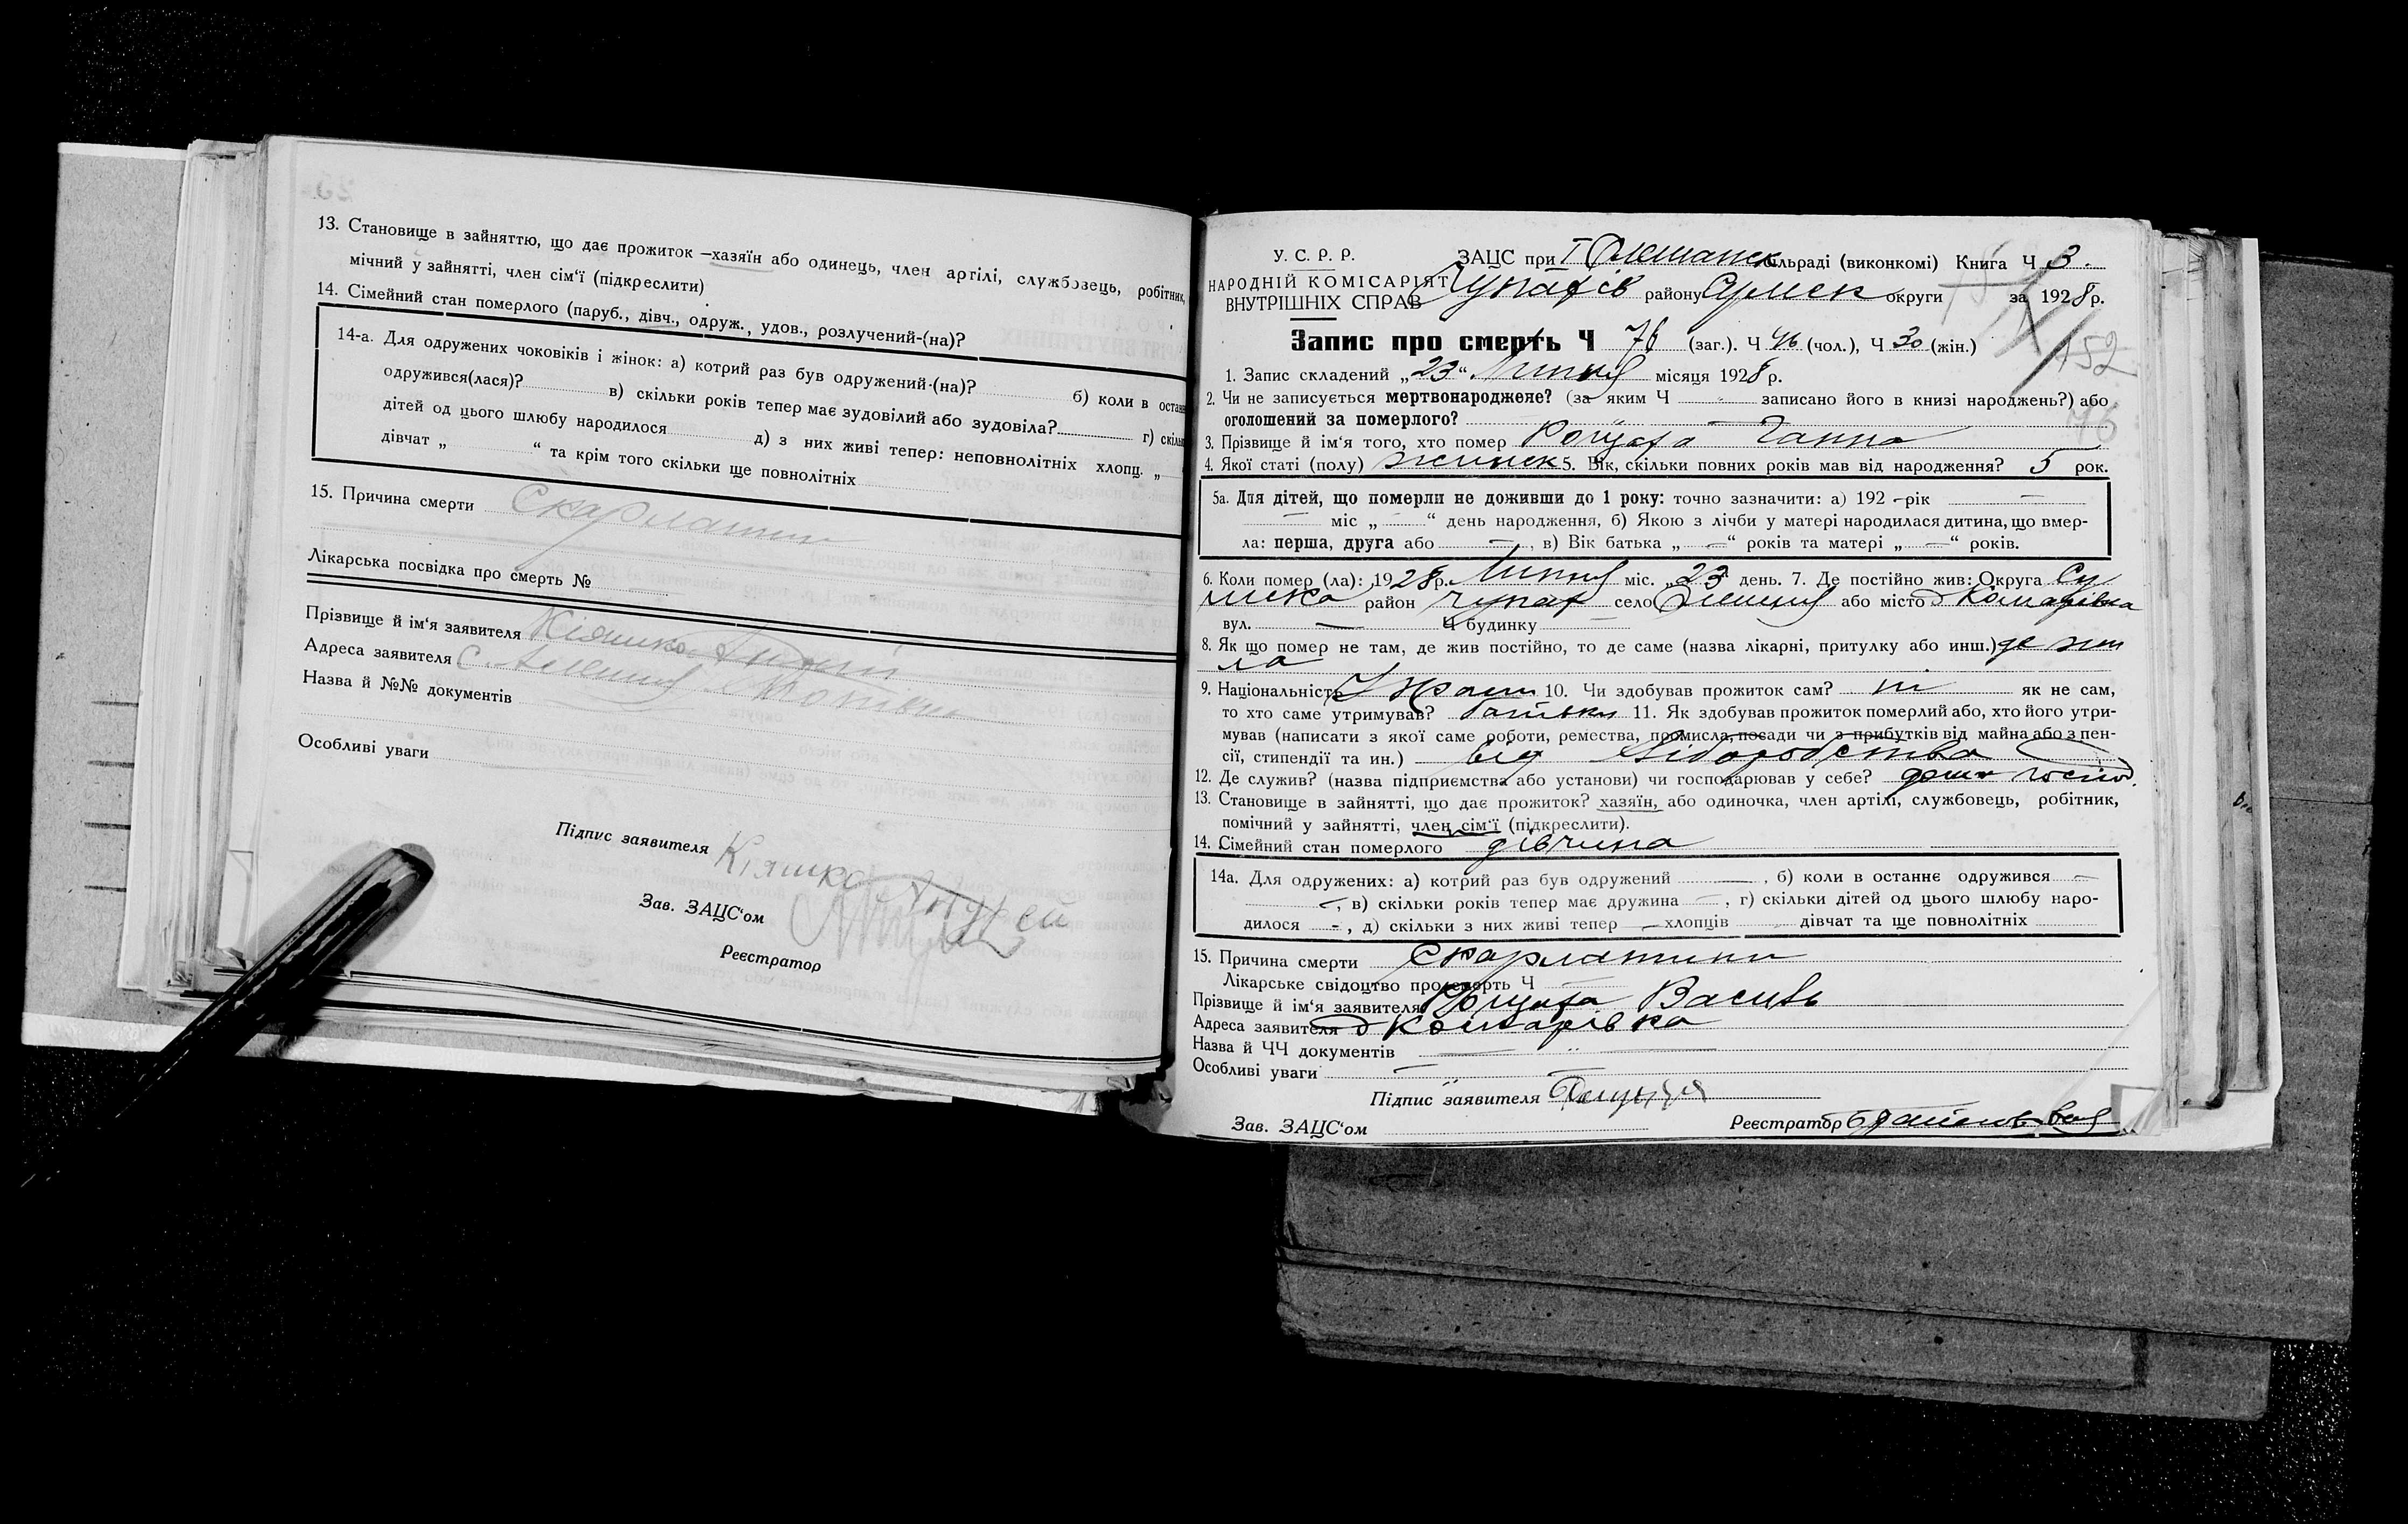 13. Становище в зайняттю, що дає прожиток —хазяїн або одинець, член артілі, службовець, робітник,
мічний у зайнятті, член сім'ї (підкреслити)
14. Сімейний стан померлого (паруб., дівч., одруж., удов., розлучений-(на)?
14-а. Для одружених чоковіків і жінок: а) котрий раз був одружений-(на)? б) коли в остан
одружився(лася)? в) скільки років тепер має зудовілий або зудовіла? г) скіль
дітей од цього шлюбу народилося д) з них живі тепер: неповнолітніх хлопц. „
дівчат „ “ та крім того скільки ще повнолітніх
15. Причина смерти Скарлатин
Лікарська посвідка про смерть №
Прізвище й ім'я заявителя Кіяшко Андрій
Адреса заявителя С.
Назва й №№ документів
Особливі уваги
Підпис заявителя Кіяшко Андрей
Зав. ЗАЦС'ом
Реєстратор
У. С. Р. Р.
НАРОДНІЙ КОМІСАРІЯТ
ВНУТРІШНІХ СПРАВ
ЗАЦС при Олешанск сільраді (виконкомі) Книга Ч 3.
Чупахів району Сумск округи за 1928р.
152
76
Запис про смерть Ч 76 (заг.). Ч 46 (чол.), Ч 30 (жін.)
1. Запис складений „23“ Липня місяця 1928 р.
2. Чи не записується мертвонароджене? (за яким Ч записано його в книзі народжень?) або
оголошений за померлого?
3. Прізвище й ім'я того, хто помер Ганна
4. Якої статі (полу) жинск 5. Вік, скільки повних років мав від народження? 5 рок.
5а. Для дітей, що померли не доживши до 1 року: точно зазначити: а) 192 – рік
— міс „ “ день народження, б) Якою з лічби у матері народилася дитина, що вмер-
ла: перша, друга або —, в) Вік батька „—“ років та матері „—“ років.
6. Коли помер (ла): 1928р. Липня міс. „23“ день. 7. Де постійно жив: Округа Су
мска район Чупах село Олешня або місто
вул. — Ч будинку —
8. Як що помер не там, де жив постійно, то де саме (назва лікарні, притулку або инш.) де жи
ла
9. Національність Украин 10. Чи здобував прожиток сам? ні як не сам,
то хто саме утримував? батьки 11. Як здобував прожиток померлий або, хто його утри-
мував (написати з якої саме роботи, ремества, промисла, посади чи з прибутків від майна або з пен-
сії, стипендії та ин.) від хліборобства
12. Де служив? (назва підприємства або установи) чи господарював у себе? дома господ.
13. Становище в зайнятті, що дає прожиток? хазяїн, або одиночка, член артілі, службовець, робітник,
помічний у зайнятті, член сім'ї (підкреслити).
14. Сімейний стан померлого дівчина
14а. Для одружених: а) котрий раз був одружений —, б) коли в останнє одружився —
—, в) скільки років тепер має дружина —, г) скільки дітей од цього шлюбу наро-
дилося —, д) скільки з них живі тепер — хлопців дівчат та ще повнолітніх
15. Причина смерти Скарлатини
Лікарське свідоцтво про смерть Ч
Прізвище й ім'я заявителя Василь
Адреса заявителя
Назва й ЧЧ документів — „ —
Особливі уваги — „ —
Підпис заявителя
Зав. ЗАЦС'ом
Реєстратор